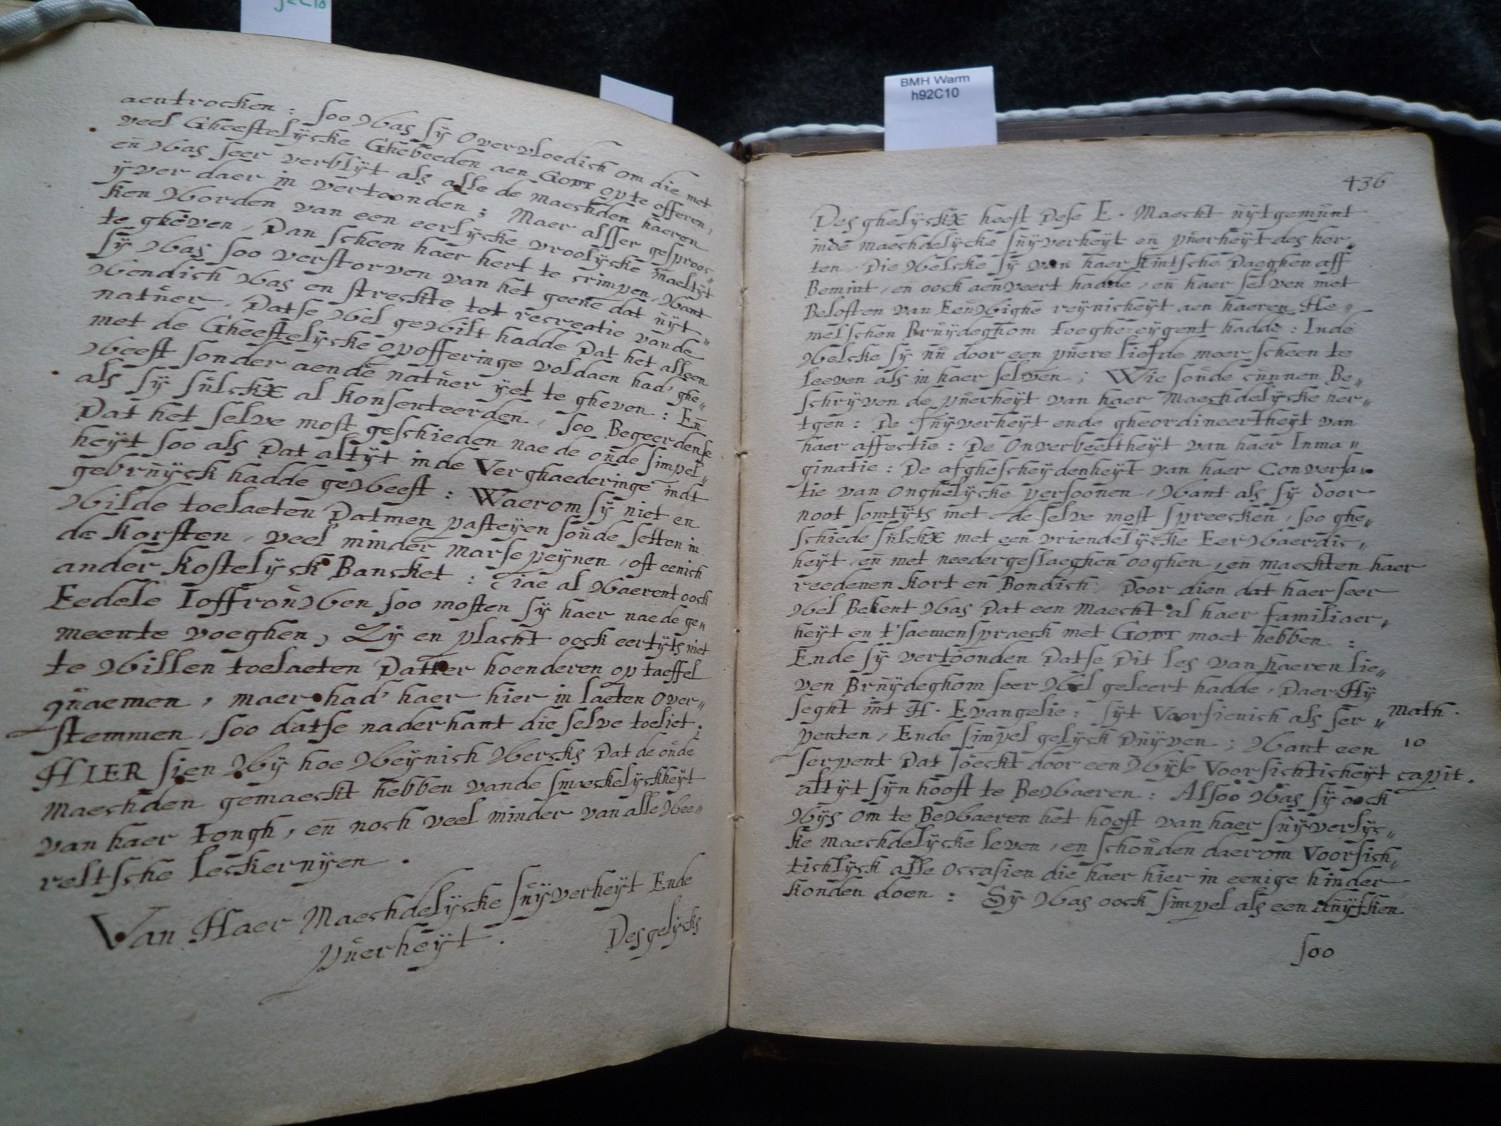 aentrocken : soo was sÿ overvloedich om die met
veel Gheestelÿcke Ghebeeden aen GODT op te offeren,
en was seer verblÿt als alle de maechden haeren
ÿver daer in vertoonden ; Maer alsser gesproo„
ken worden van een eerlÿcke vroolÿcke maeltÿt
te gheven, Dan scheen haer hert te crimpen, want
sÿ was soo verstorven van het geene dat uÿt„
wendich was en streckte tot recreatie vande
natuer, Datse wel gewilt hadde Dat het alleen
met de Gheestelÿcke opofferinge voldaen had' ghe„
weest sonder aende natuer ÿet te gheven : En
als sÿ sulckx al konsenteerden, soo Begeerdense
Dat het selve most geschieden nae de oude simpel„
heÿt soo als Dat altÿt inde Verghaederinge int
gebruÿck hadde geweest : Waerom sÿ niet en
wilde toelaeten Datmen pasteÿen soude setten in
de korsten, veel minder marsepeÿnen, oft eenich
ander kostelÿck Bancket : Jae al waerent oock
Eedele Joffrouwen, soo mosten sÿ haer nae de ge„
meente voeghen, Zÿ en placht oock eertÿts niet
te willen toelaeten Datter hoenderen op taeffel
quaemen, maer had' haer hier in laeten over„
stemmen, soo datse naderhant die selve toeliet.
HIER sien wÿ hoe weÿnich wercks Dat de oude
Maechden gemaeckt hebben vande smaeckelÿckheÿt
van haer Tongh, en noch veel minder van alle wee„
reltsche leckernÿen .
Van Haer Maechdelÿcke suÿverheÿt Ende
puerheÿt .
Desgelÿcks
BMH Warm
h92C10
436
Desghelÿckx heeft Dese E. Maecht uÿtgemunt
inde maechdelÿcke suÿverheÿt en puerheÿt des her„
ten, Die welcke sÿ van haer kintsche Daeghen aff
Bemint, en oock aenveert hadde, en haer selven met
Beloften van Eenwighe reÿnicheÿt aen haeren He„
melschen Bruÿdeghom toeghe-eÿgent hadde : Inde
welcke sÿ nu door een puere liefde meer scheen te
leeven als in haer selven ; Wie soude cunnen Be„
schrÿven de puerheÿt van haer Maechdelÿcke her„
tgen : De suÿverheÿt ende gheordineertheÿt van
haer affectie : De onverbeeltheÿt van haer Inma„
ginatie : De afghescheÿdenheÿt van haer Conversa„
tie van onghelÿcke persoonen, want als sÿ door
noot somtÿts met de selve most spreecken, soo ghe„
schiede sulckx met een vriendelÿcke Eerwaerdic„
heÿt, en met needergeslaeghen ooghen, en maeckten haer
reedenen kort en Bondich Door dien dat haer seer
wel Bekent was Dat een Maecht al haer familiaer„
heÿt en t'saemenspraeck met GODT moet hebben :
Ende sÿ vertoonden Datse Dit les van haeren lie„
ven Bruÿdeghom seer wel geleert hadde, Daer Hÿ
seght int H. Evangelie : Sÿt Voorsienich als ser„
penten, Ende simpel gelÿck Duÿven ; want een
serpent Dat soeckt door een wÿse Voorsichticheÿt
altÿt sÿn hooft te Bewaeren : Alsoo was sÿ oock
wÿs om te Bewaeren het hooft van haer suÿverlÿc„
ke maechdelÿcke leven, en schouden daerom Voorsich„
tichlÿck alle occasien die haer hier in eenige hinder
konden doen : Sÿ was oock simpel als een duÿfken
Math.
10
capit.
soo